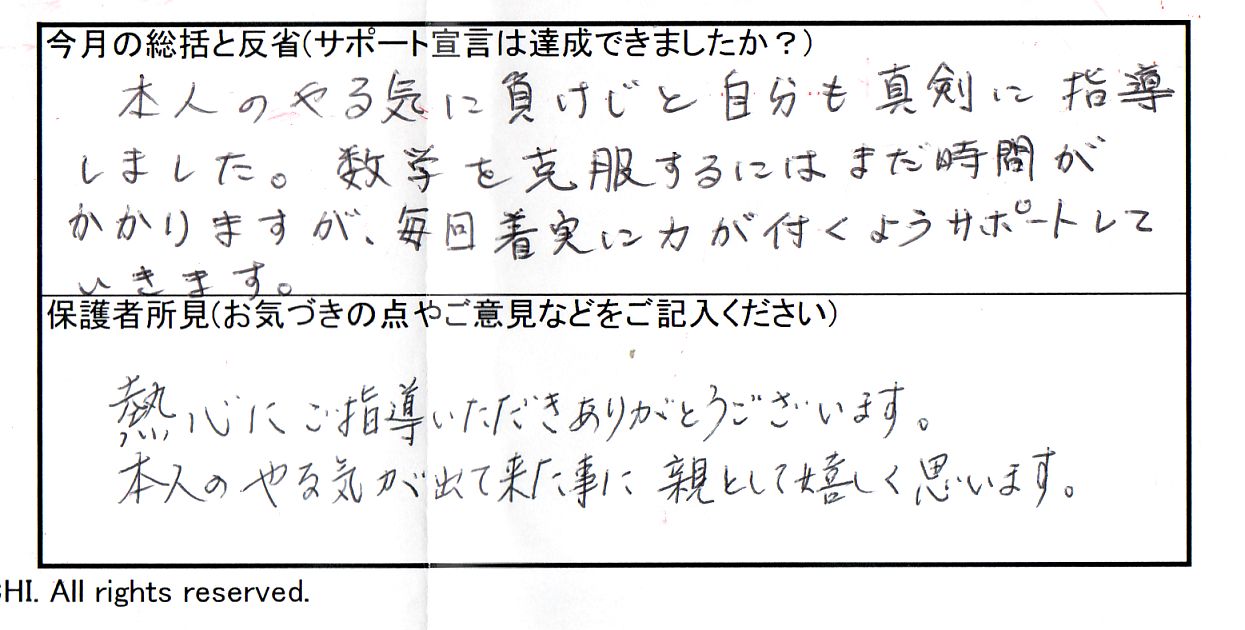 今月の総括と反省(サポート宣言は達成できましたか？)
本人のやる気に負けじと自分も真剣に指導
しました。数学を克服するにはまだ時間が
かかりますが、毎回着実に力が付くようサポートして
いきます。
保護者所見(お気づきの点やご意見などをご記入ください)
熱心にご指導いただきありがとうございます。
本人のやる気が出て来た事に親として嬉しく思います。
HI. All rights reserved.